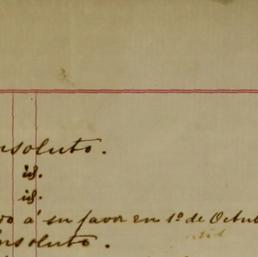 nsoluto.
id.
id.
vo á su favor en 1º de Octub
nsoluto.